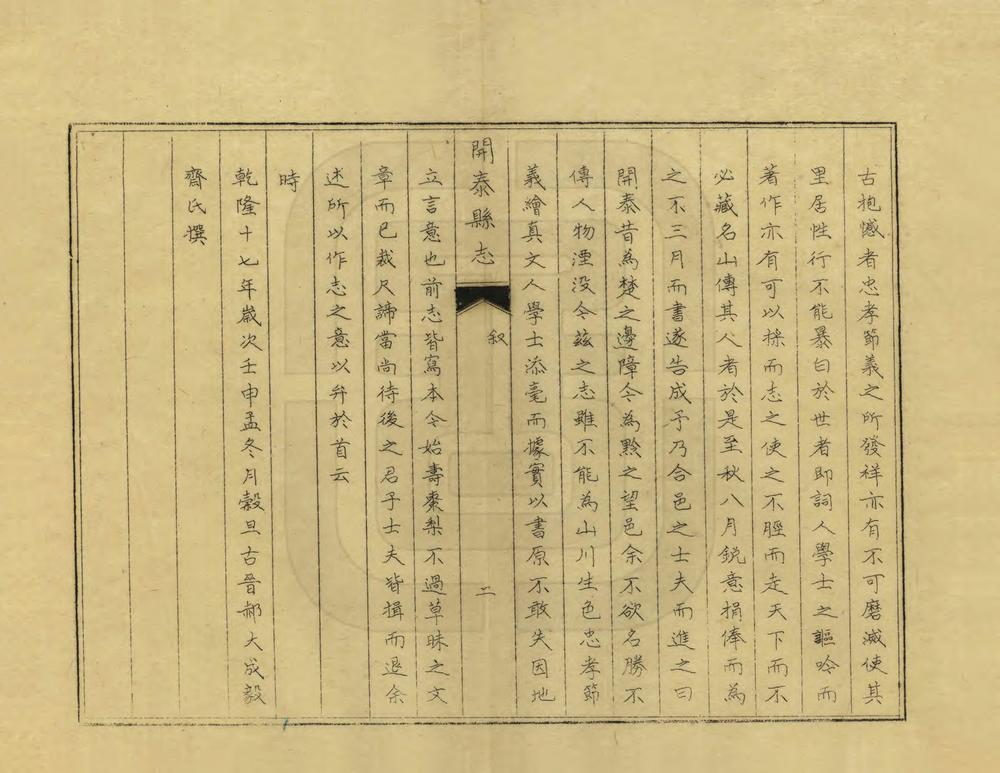 古抱憾者忠孝節義之所發祥亦有不可磨滅使其
里居性行不能暴白於世者即詞人學士之謳吟而
著作亦有可以採而志之使之不脛而走天下而不
必藏名山傳其人者於是至秋八月銳意捐俸而為
之不三月而書遂告成予乃合邑之士夫而進之曰
開泰昔為楚之邊障今為黔之望邑余不欲名勝不
傳人物湮没令茲之志雖不能為山川生色忠孝節
義繪真文人學士添毫而據實以書原不敢失因地
開泰縣志
叙
二
立言意也前志皆寫本令始壽棗梨不過草昧之文
章而已裁尺諦當尚待後之君子士夫皆揖而退余
述所以作志之意以弁於首云
時
乾隆十七年歲次壬申孟冬月穀旦古晉郝大成毅
齋氏撰